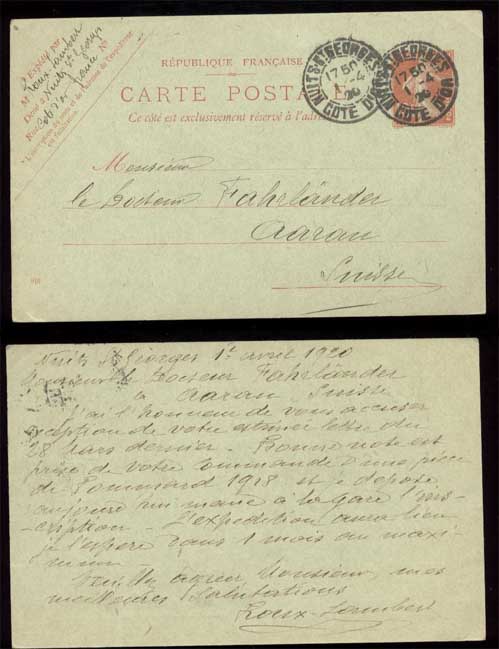 M Expédié par
Roux Lambert
Nuits St Georges
Côte d'or France
RÉPUBLIQUE FRANÇAISE
CARTE POSTALE
Ce côté est exclusivement réservé à l'adresse
NUITS-St-GEORGES
17 50
1 -4
20
CÔTE D'OR
NUITS-St-GEORGES
17 50
1 -4
20
CÔTE D'OR
Monsieur
le Docteur Fahrländer
Aarau
Suisse
Nuits St Georges 1er avril 1920
Monsieur le Docteur Fahrländer
à Aarau Suisse
J'ai l'honneur de vous accuser
réception de votre estimée lettre du
28 mars dernier. Bonne note est
prise de votre commande d'une pièce
de Pommard 1918 et je dépose
aujourd'hui même à la gare l'ins-
cription. L'expédition aura lieu
je l'espère dans 1 mois au maxi-
mum
Veuillez agréer, Monsieur, mes
meilleures salutations
Roux-Lambert